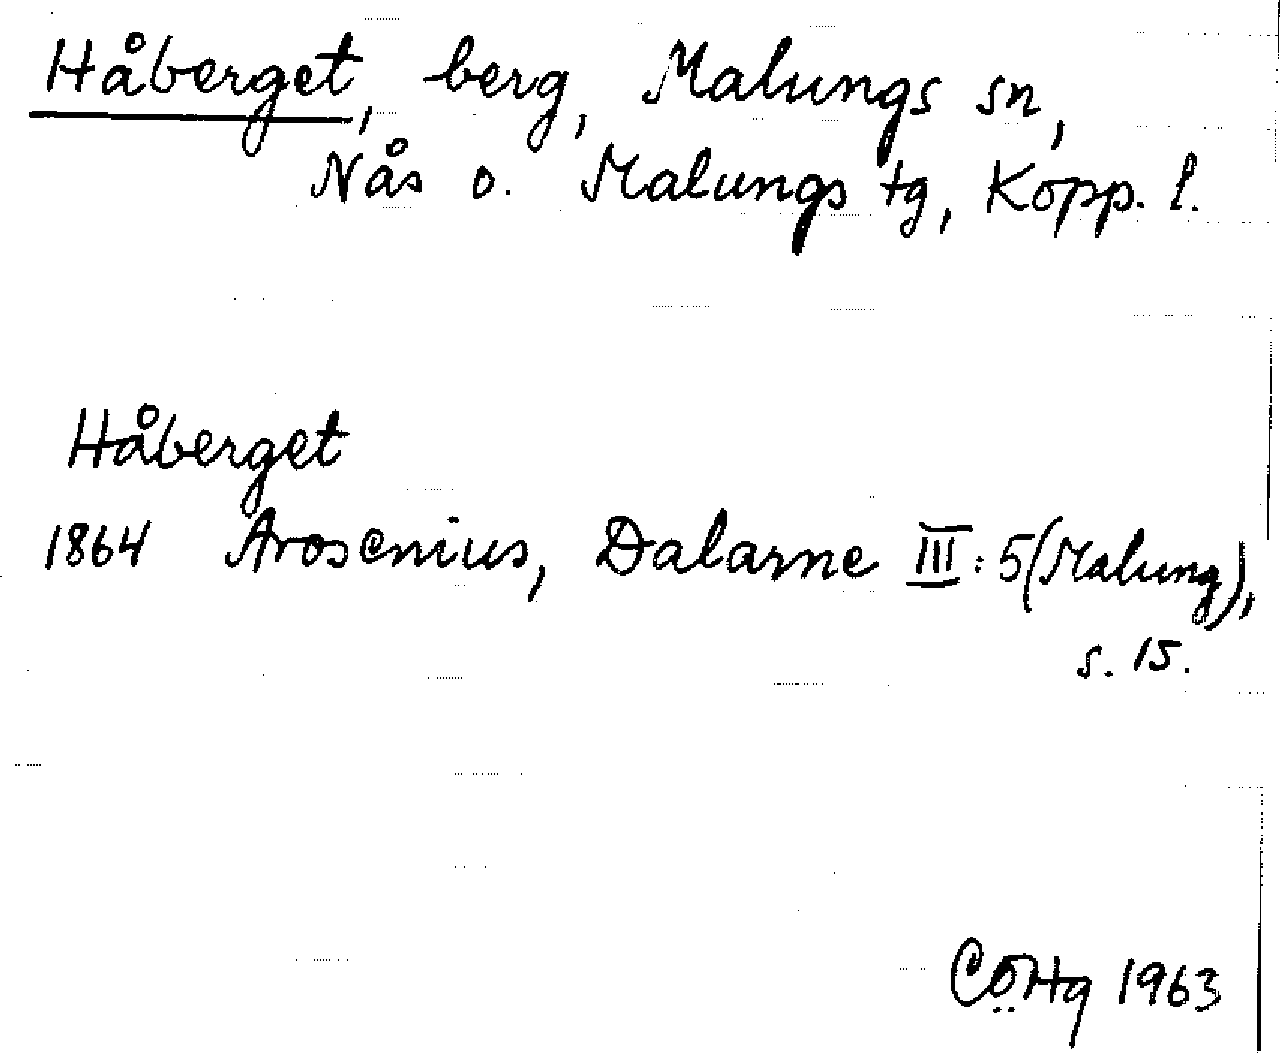 Håberget, berg, Malungs sn,
Nås o. Malungs tg, Kopp. l.
Håberget
1864 Arosenius, Dalarne III:5 (Malung),
s. 15.
CÖHg 1963